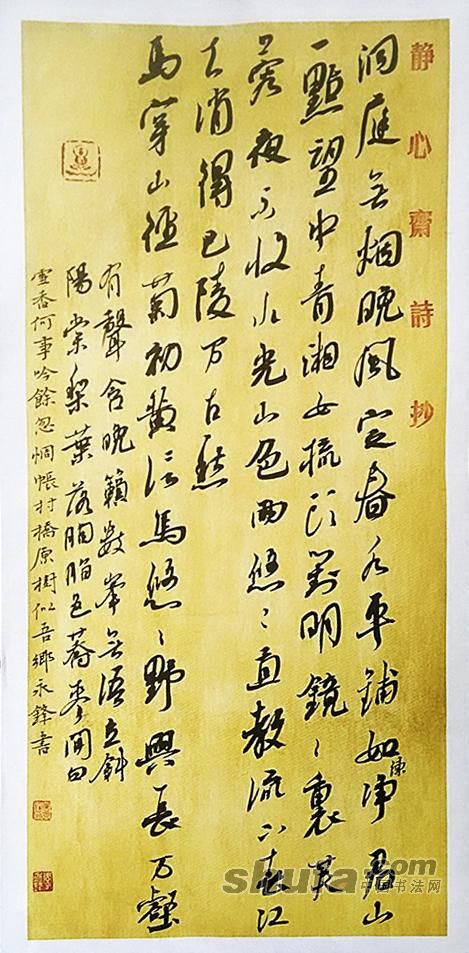 静心齋詩抄
洞庭无烟晚風定春水平鋪如練净君山
一點望中青湘女梳头對明鏡々裏芙
蓉夜不收水光山色兩悠々直教流下春江
去消得巴陵万古愁
馬穿山徑菊初黄信馬悠々野興長万壑
有聲含晚籟數峯无語立斜
陽棠梨葉落胭脂色蕎麥開白
雪香何事吟餘忽惆悵村橋原樹似吾鄉永鋒書
shufa.com
中国书法网